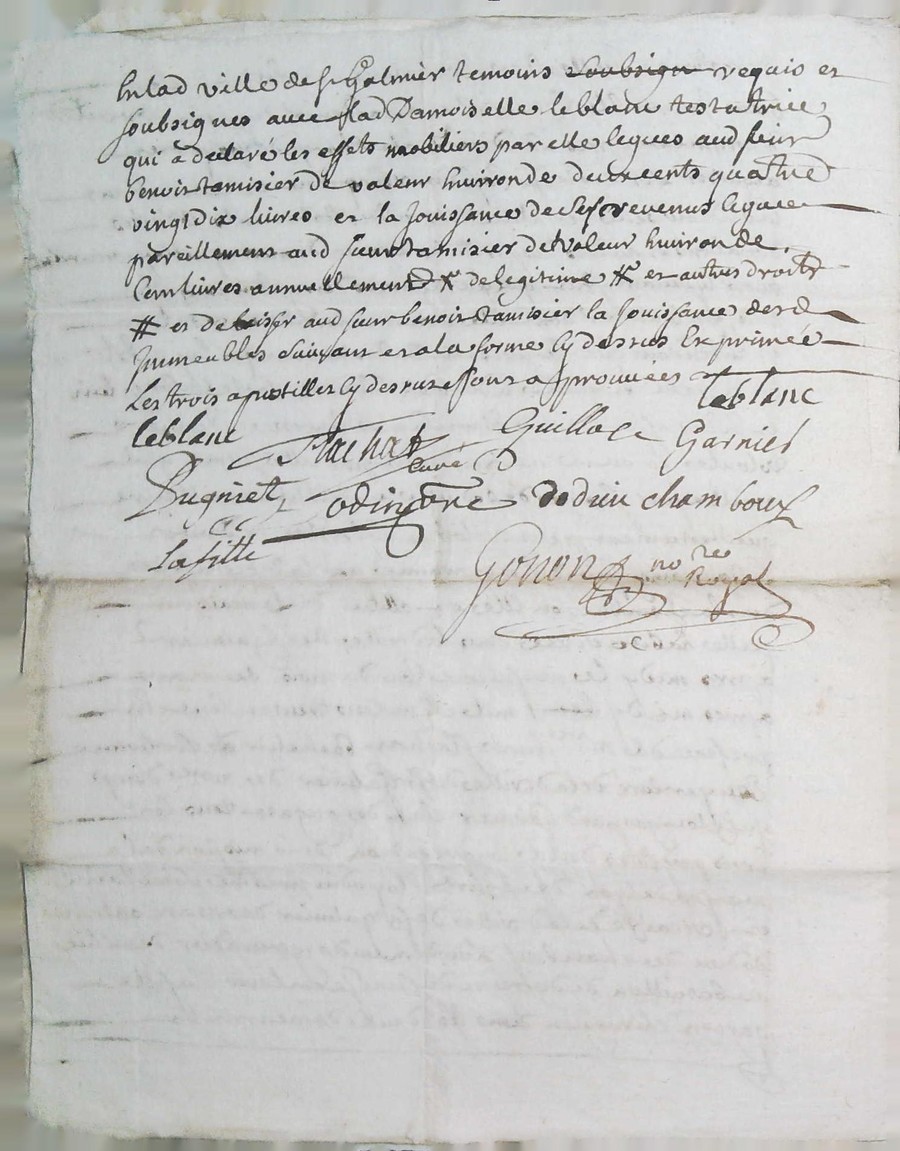 En lad ville de St Galmier temoins soubsigne requis et
soubsignes avec lad Damoiselle leblanc testatrice
qui a declaré les effets mobiliers par elle legues aud sieur
benoit tamisier de valeur huironde deux cents quatre
vingt dix livres et la Jouissance de ses revenus leguee
pareillement aud sieur tamisier de valeur huironde
Cent livres annuellement de legitime # et autres droits
# et de laisser aud sieur benoit tamisier la Jouissance desd
Immeubles suivant et a la forme cy dessus Exprimée
Les trois apostilles cy dessus sont approuvées leblanc
leblanc Flachat curé Guillose Garnier
Dugniet odin dodieu chamboux
Lafitte
Gonon no re Royal